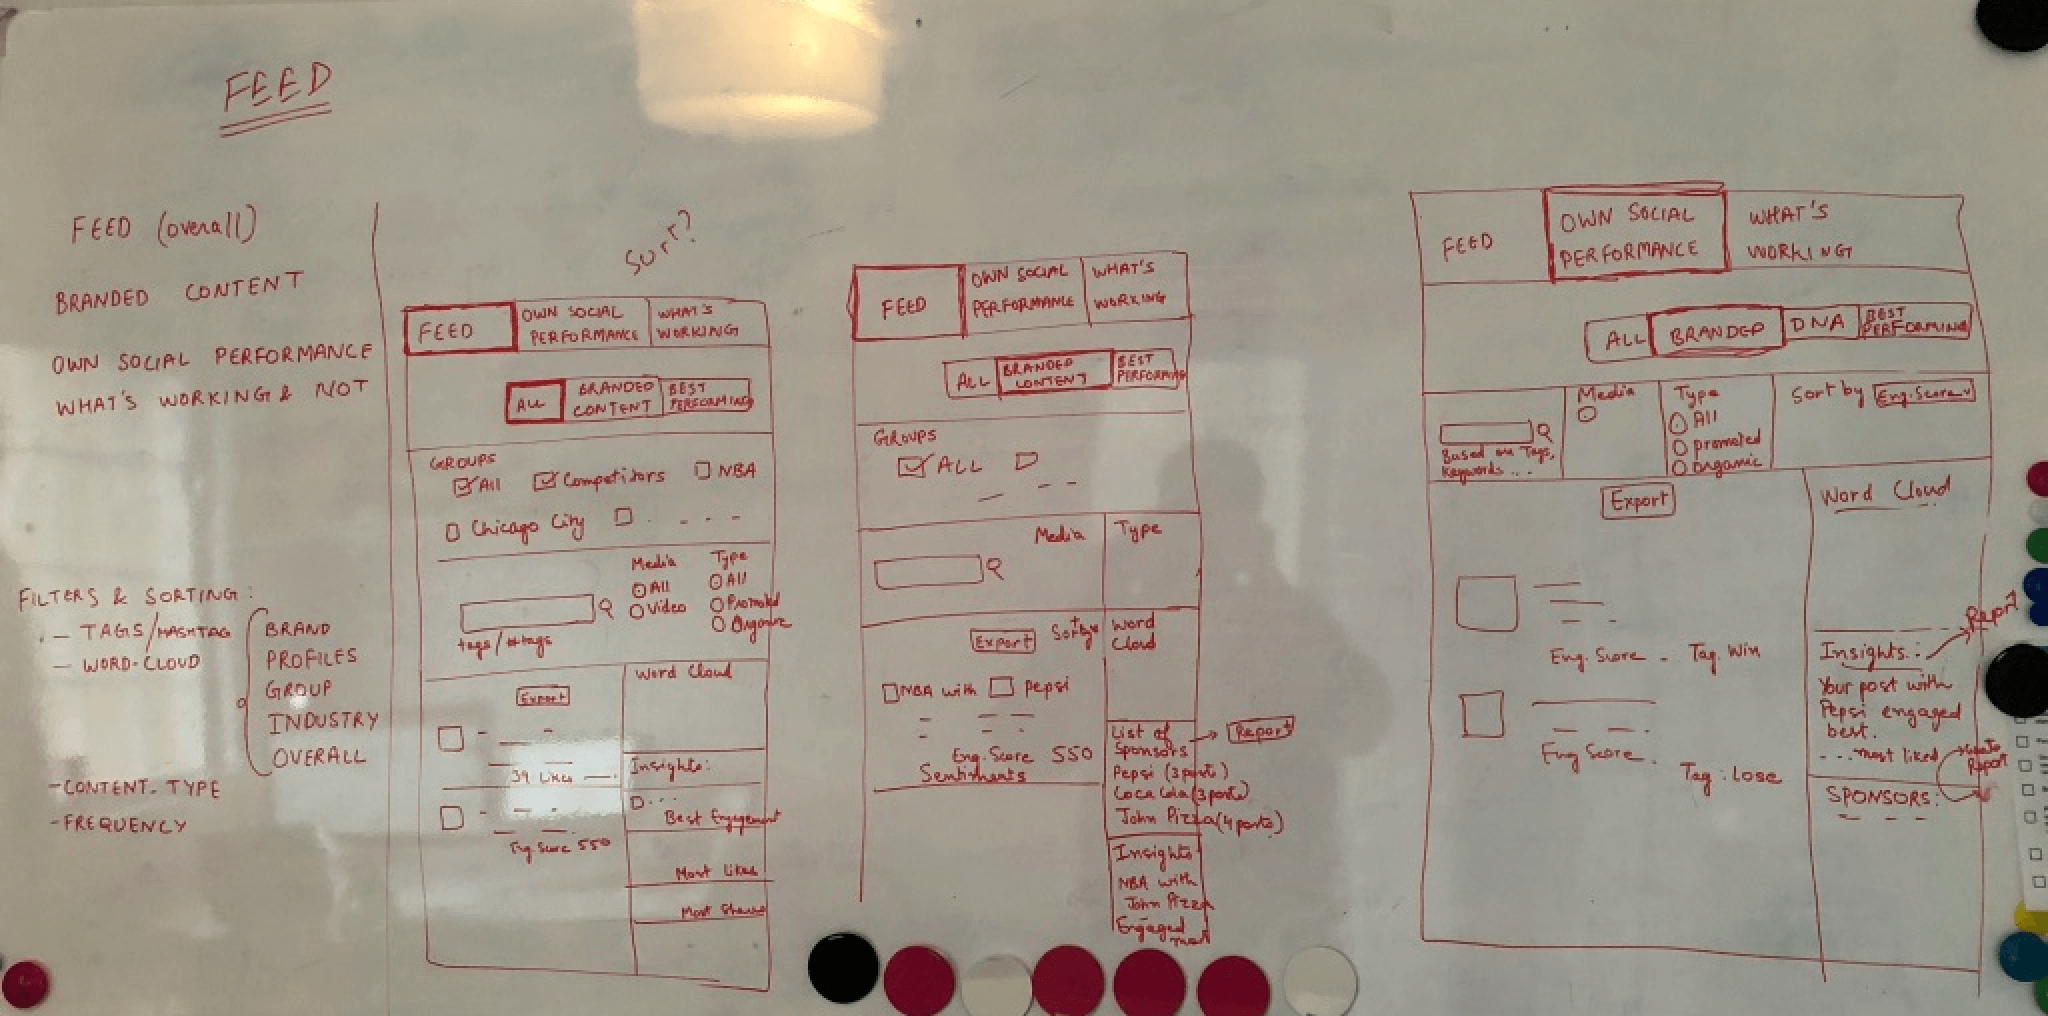 FEED
FEED (overall)
BRANDED CONTENT
OWN SOCIAL PERFORMANCE
WHAT'S WORKING & NOT
FILTERS & SORTING:
- TAGS/HASHTAG
- WORD-CLOUD
BRAND
PROFILES
GROUP
INDUSTRY
OVERALL
- CONTENT. TYPE
- FREQUENCY
Sort?
FEED
OWN SOCIAL
PERFORMANCE
WHAT'S
WORKING
ALL
BRANDED
CONTENT
BEST
PERFORMING
GROUPS
All
Competitors
NBA
Chicago City
Media
All
Video
Type
All
Promoted
Organic
tags/#tags
Export
39 Likes
Eng. Score 550
Word Cloud
Insights:
Best Engagement
Most Likes
Most Shares
FEED
OWN SOCIAL
PERFORMANCE
WHAT'S
WORKING
ALL
BRANDED
CONTENT
BEST
PERFORMING
GROUPS
ALL
Media
Type
Export
Sort by
NBA with Pepsi
Eng. Score 550
Sentiments
Word
Cloud
List of
Sponsors
Report
Pepsi (3 posts)
Coca Cola (3 posts)
John Pizza (4 posts)
Insights
NBA with
John Pizza
Engaged
most
FEED
OWN SOCIAL
PERFORMANCE
WHAT'S
WORKING
ALL
BRANDED
DNA
BEST
PERFORMING
Based on Tags,
Keywords...
Media
Type
All
promoted
Organic
Sort by Eng. Score
Export
Eng. Score - Tag. Win
Eng Score.
Tag: Lose
Word Cloud
Insights:
Report
Your post with
Pepsi engaged
best.
...most liked
Report
SPONSORS: